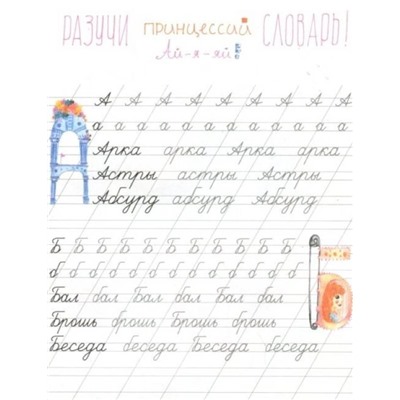 РАЗУЧИ ПРИНЦЕССИЙ СЛОВАРЬ!
Ай-я-яй!
А А А А А А А А А
а а а а а а а а а а а
Арка арка Арка арка
Астры астры Астры
Абсурд абсурд Абсурд
Б Б Б Б Б Б Б Б Б
б б б б б б б б б б б
Бал бал Бал бал Бал бал
Брошь брошь Брошь брошь
Беседа беседа Беседа беседа